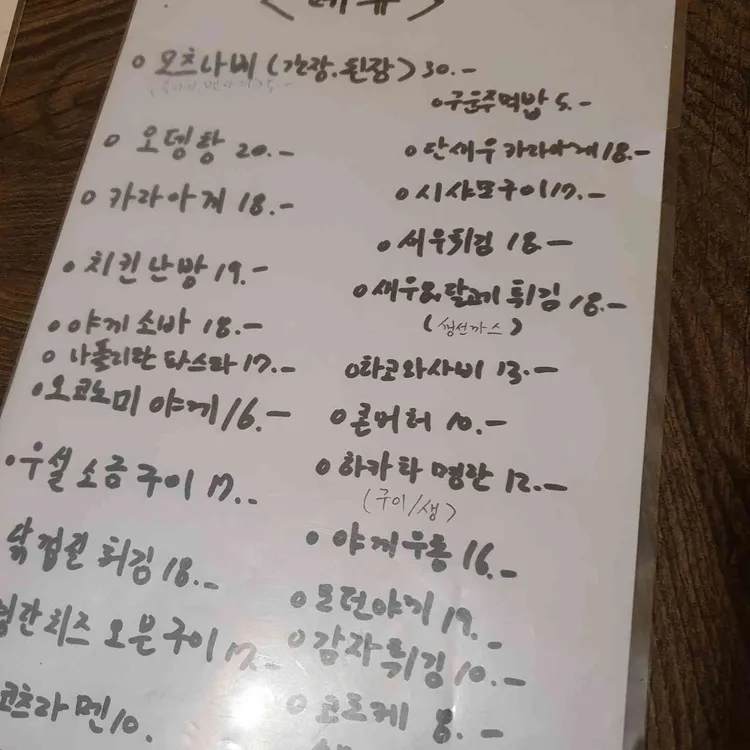 <메뉴>
○ 모츠나베 (간장, 된장) 30.-
○ 오뎅탕 20.-
○ 카라아게 18.-
○ 치킨난방 19.-
○ 야끼소바 18.-
○ 나폴리탄 파스타 17.-
○ 오코노미야끼 16.-
○ 우설 소금구이 17.-
닭껍질 튀김 18.-
명란치즈 오븐구이 17.-
모츠라멘 10.
○ 구운주먹밥 5.-
○ 단새우 카라아게 18.-
○ 시샤모구이 17.-
○ 새우튀김 18.-
○ 새우&닭고기 튀김 18.-
○ 타코와사비 13.-
○ 콘버터 10.-
○ 하카타 명란 12.-
(구이/생)
○ 야끼우동 16.-
○ 모던야끼 19.-
○ 감자튀김 10.-
○ 고로케 8.-